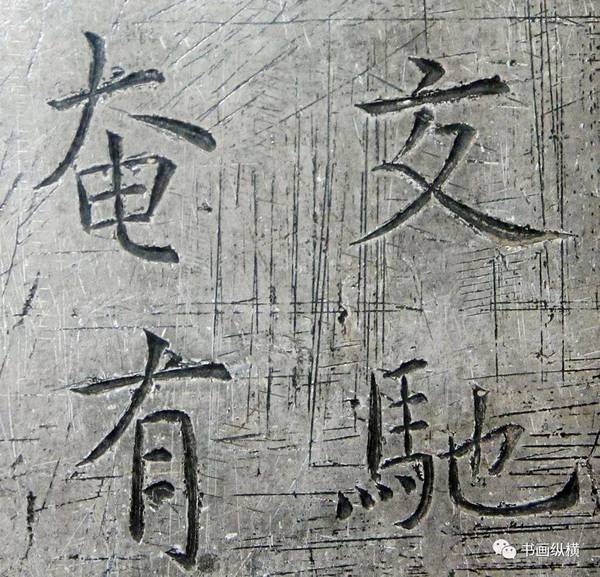 交馳
奄有
书画纵横